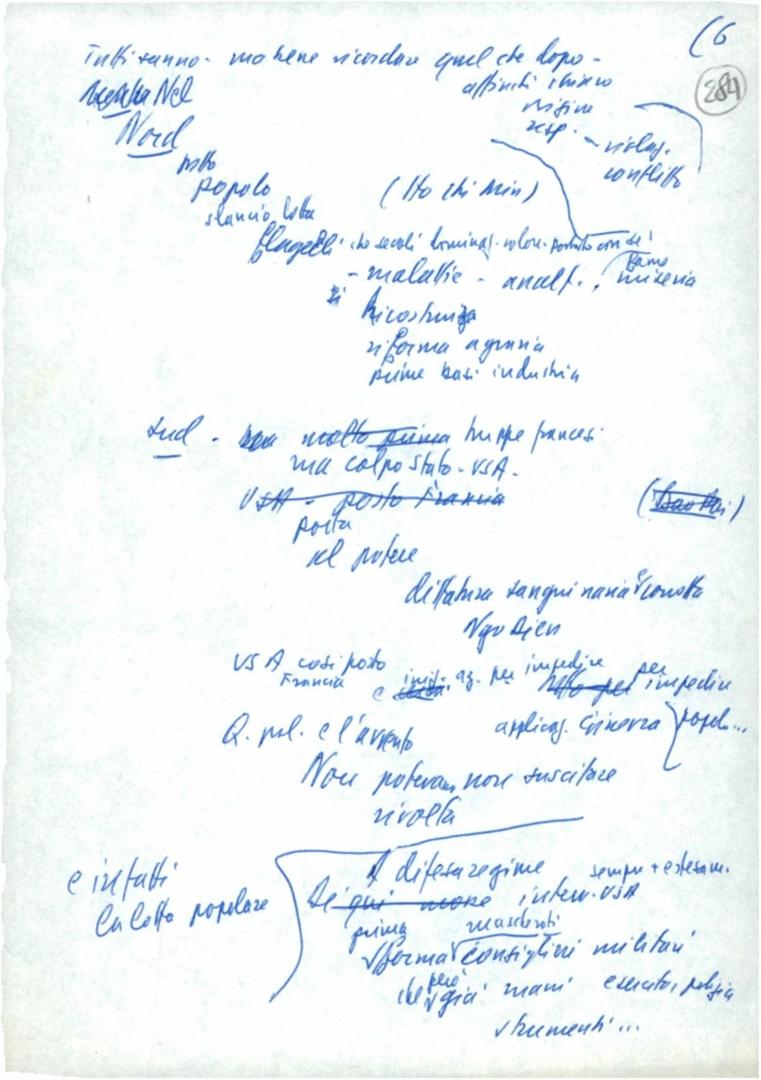 (6
284
Tutti sanno - ma bene ricordare quel che dopo -
affinché chiaro
origine
resp. - violaz.
conflitto
Nel
Nord
tutto
popolo (Ho chi Min)
slancio lotta
flagelli che secoli dominaz. colon. portato con sé
- malattie - analf., fame miseria
si
Ricostruz
riforma agraria
prime basi industria
Sud - molto prima truppe francesi
ma colpo stato - USA -
USA - posto Francia (Bao Dai)
porta
al potere
dittatura sanguinaria e corrotta
Ngo Dien
USA così posto
Francia
e iniz. az. per impedire per impedire
applicaz. Ginevra popolo...
Q. pol. e l'avvento
Non potevan non suscitare
rivolta
e infatti
la lotta popolare
A difesa regime sempre + estesam.
Di qui interv. USA
prima mascherati
forma consiglieri militari
che però già mani esercito, polizia
strumenti ...